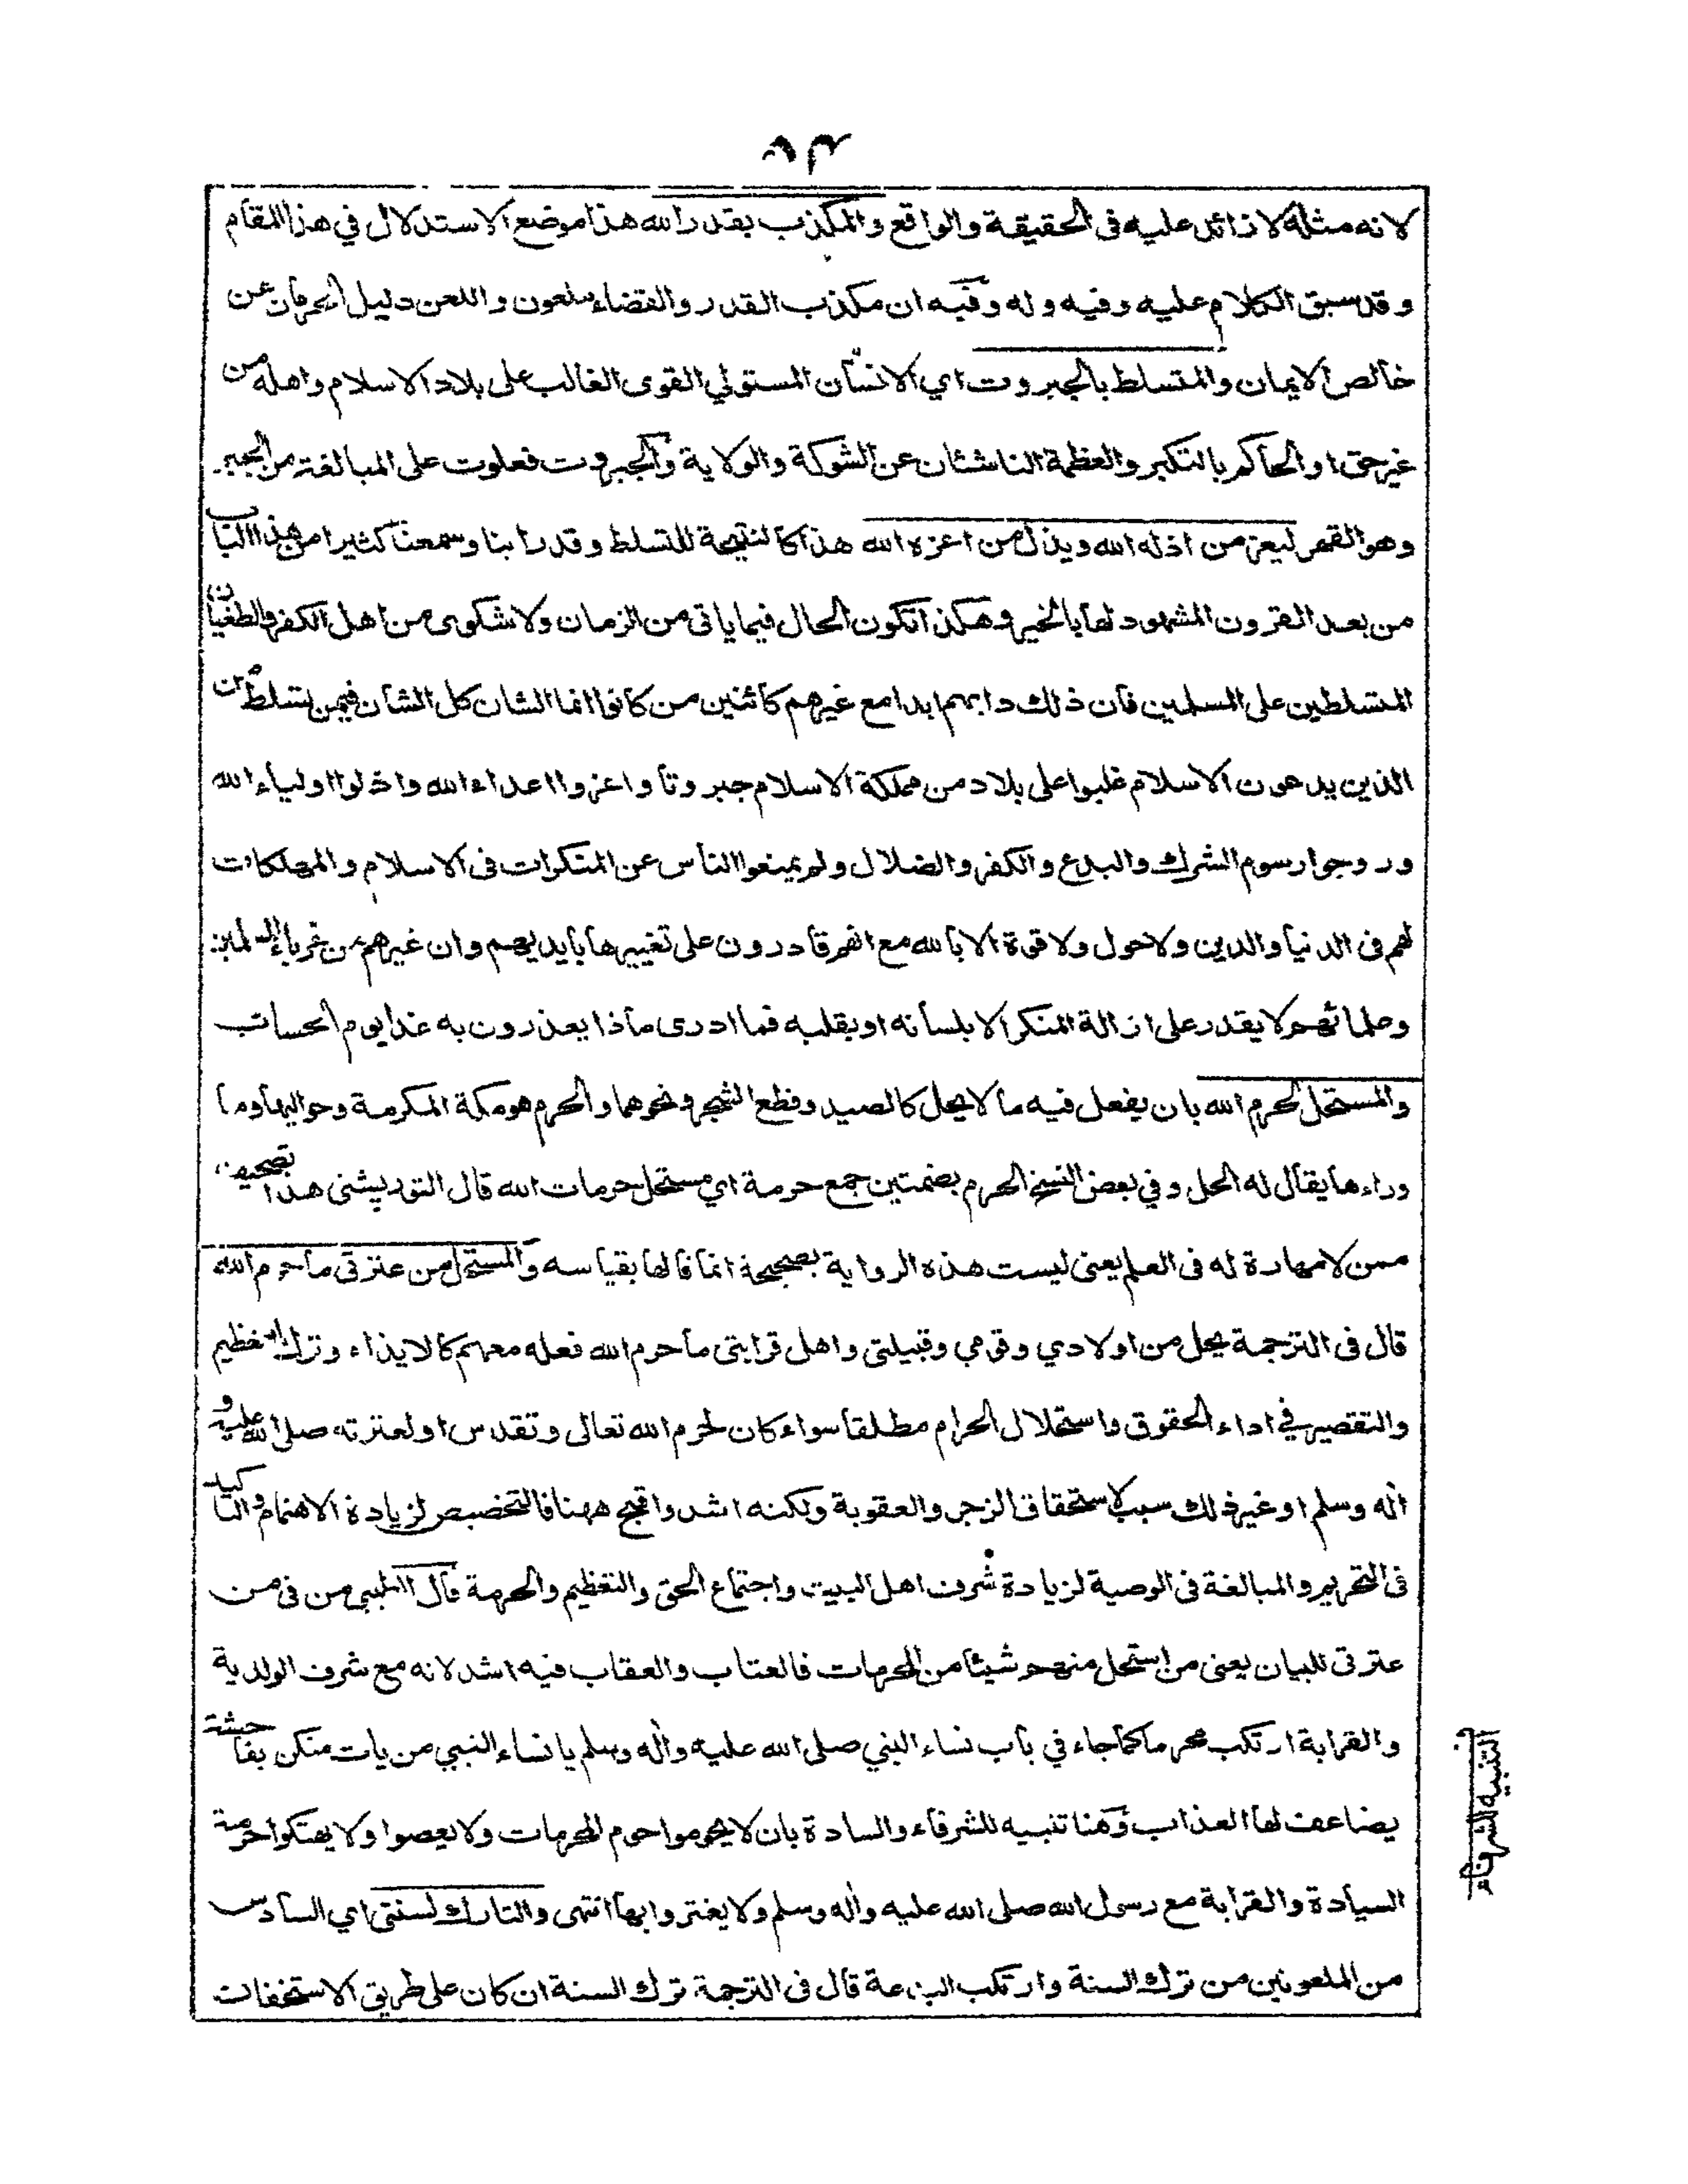 ٩٣
لانه مثله لا زائد عليه فى الحقيقة والواقع والمكذب بقدر الله هذا موضع الاستدلال في هذا المقام
وقد سبق الكلام عليه وفيه وله وفيه ان مكذب القدر والقضاء ملعون واللعن دليل الحرمان عن
خالص الايمان والمتسلط بالجبروت اي الانسان المستولي القوى الغالب على بلاد الاسلام واهله من
غير حق او الحاكم بالتكبر والعظمة الناشئان عن الشوكة والولاية والجبروت فعلوت على المبالغة من الجبر
وهو القهر ليعز من اذله الله ويذل من اعزه الله هذا كالنتيجة للتسلط وقد راينا وسمعنا كثيرا من هذا الباب
من بعد القرون المشهود لها بالخير وهكذا تكون الحال فيما ياتى من الزمان ولا شكوى من اهل الكفر والطغيان
المتسلطين على المسلمين فان ذلك دابهم ابدا مع غيرهم كائنين من كانوا انما الشان كل الشان فيمن تسلط من
الذين يدعون الاسلام غلبوا على بلاد من مملكة الاسلام جبروتا واعزوا اعداء الله واذلوا اولياء الله
وروجوا رسوم الشرك والبدع والكفر والضلال ولم يمنعوا الناس عن المنكرات فى الاسلام والمهلكات
لهم فى الدنيا والدين ولا حول ولا قوة الا بالله مع انهم قادرون على تغييرها بايديهم وان غيرهم من غرباء المسلمين
وعلمائهم لا يقدر على ازالة المنكر الا بلسانه او بقلبه فما ادرى ماذا يعذرون به غدا يوم الحساب
والمستحل لحرم الله بان يفعل فيه ما لا يحل كالصيد وقطع الشجر ونحوهما والحرم هو مكة المكرمة وحواليها وما
وراءها يقال له الحل وفي بعض النسخ الحرم بضمتين جمع حرمة اي مستحل حرمات الله قال التوربشتى هذا تصحيف
ممن لا مهارة له فى العلم يعنى ليست هذه الرواية بصحيحة انما قالها بقياسه والمستحل من عترتى ما حرم الله
قال فى الترجمة يحل من اولادي وقومي وقبيلتى واهل قرابتى ما حرم الله فعله معهم كالايذاء وترك التعظيم
والتقصير في اداء الحقوق واستحلال الحرام مطلقا سواء كان لحرم الله تعالى وتقدس او لعترته صلى الله عليه و
اله وسلم او غير ذلك سبب لاستحقاق الزجر والعقوبة ولكنه اشد واقبح ههنا فالتخصيص لزيادة الاهتمام والتاكيد
فى التحريم والمبالغة فى الوصية لزيادة شرف اهل البيت واجتماع الحق والتعظيم والحرمة قال الطيبي من فى من
عترتى للبيان يعنى من استحل منهم شيئا من المحرمات فالعتاب والعقاب فيه اشد لانه مع شرف الولدية
والقرابة ارتكب محرما كما جاء في باب نساء النبي صلى الله عليه واله وسلم يا نساء النبي من يات منكن بفاحشة
يضاعف لها العذاب وهنا تنبيه للشرفاء والسادة بان لا يحوموا حوم المحرمات ولا يعصوا ولا يهتكوا حرمة
السيادة والقرابة مع رسول الله صلى الله عليه واله وسلم ولا يغتروا بها انتهى والتارك لسنتى اي السادس
من الملعونين من ترك السنة وارتكب البدعة قال فى الترجمة ترك السنة ان كان على طريق الاستخفاف
التنبيه للشرفاء